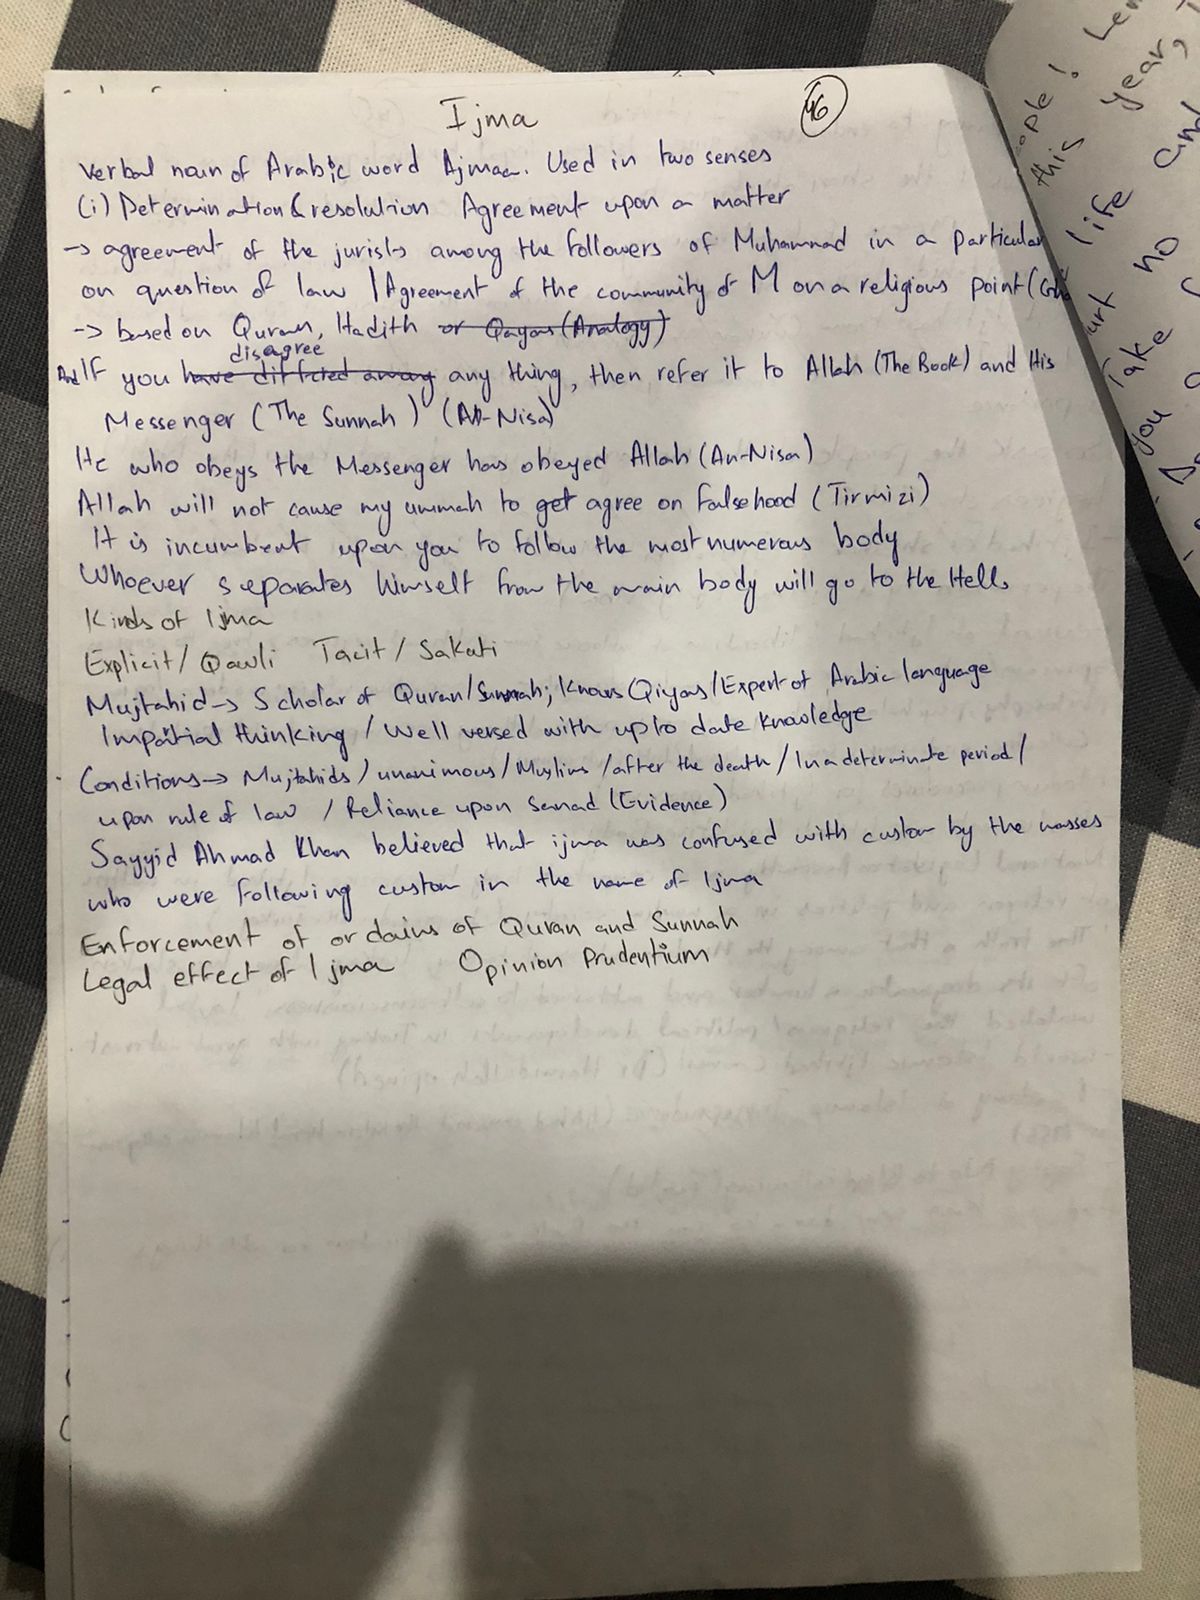 Ijma
46
Verbal noun of Arabic word Ajmaa. Used in two senses
(i) Determination & resolution Agreement upon a matter
→ agreement of the jurists among the followers of Muhammad in a particular
on question of law / Agreement of the community of M on a religious point (
→ based on Quran, Hadith or Qayas (Analogy)
disagree
And If you have differed among any thing, then refer it to Allah (The Book) and His
Messenger (The Sunnah) (An-Nisa)
He who obeys the Messenger has obeyed Allah (An-Nisa)
Allah will not cause my ummah to get agree on falsehood (Tirmizi)
It is incumbent upon you to follow the most numerous body
Whoever separates himself from the main body will go to the Hell.
Kinds of Ijma
Explicit / Qawli Tacit / Sakuti
Mujtahid → Scholar of Quran/Sunnah; Knows Qiyas/Expert of Arabic language
Impatial thinking / Well versed with upto date knowledge
Conditions → Mujtahids / unanimous / Muslims / after the death / In a determinate period /
upon rule of law / Reliance upon sanad (Evidence)
Sayyid Ahmad Khan believed that ijma was confused with custom by the masses
who were following custom in the name of Ijma
Enforcement of ordains of Quran and Sunnah
Legal effect of Ijma Opinion Prudentium
ople!
this year,
life and
urt no
Take
you